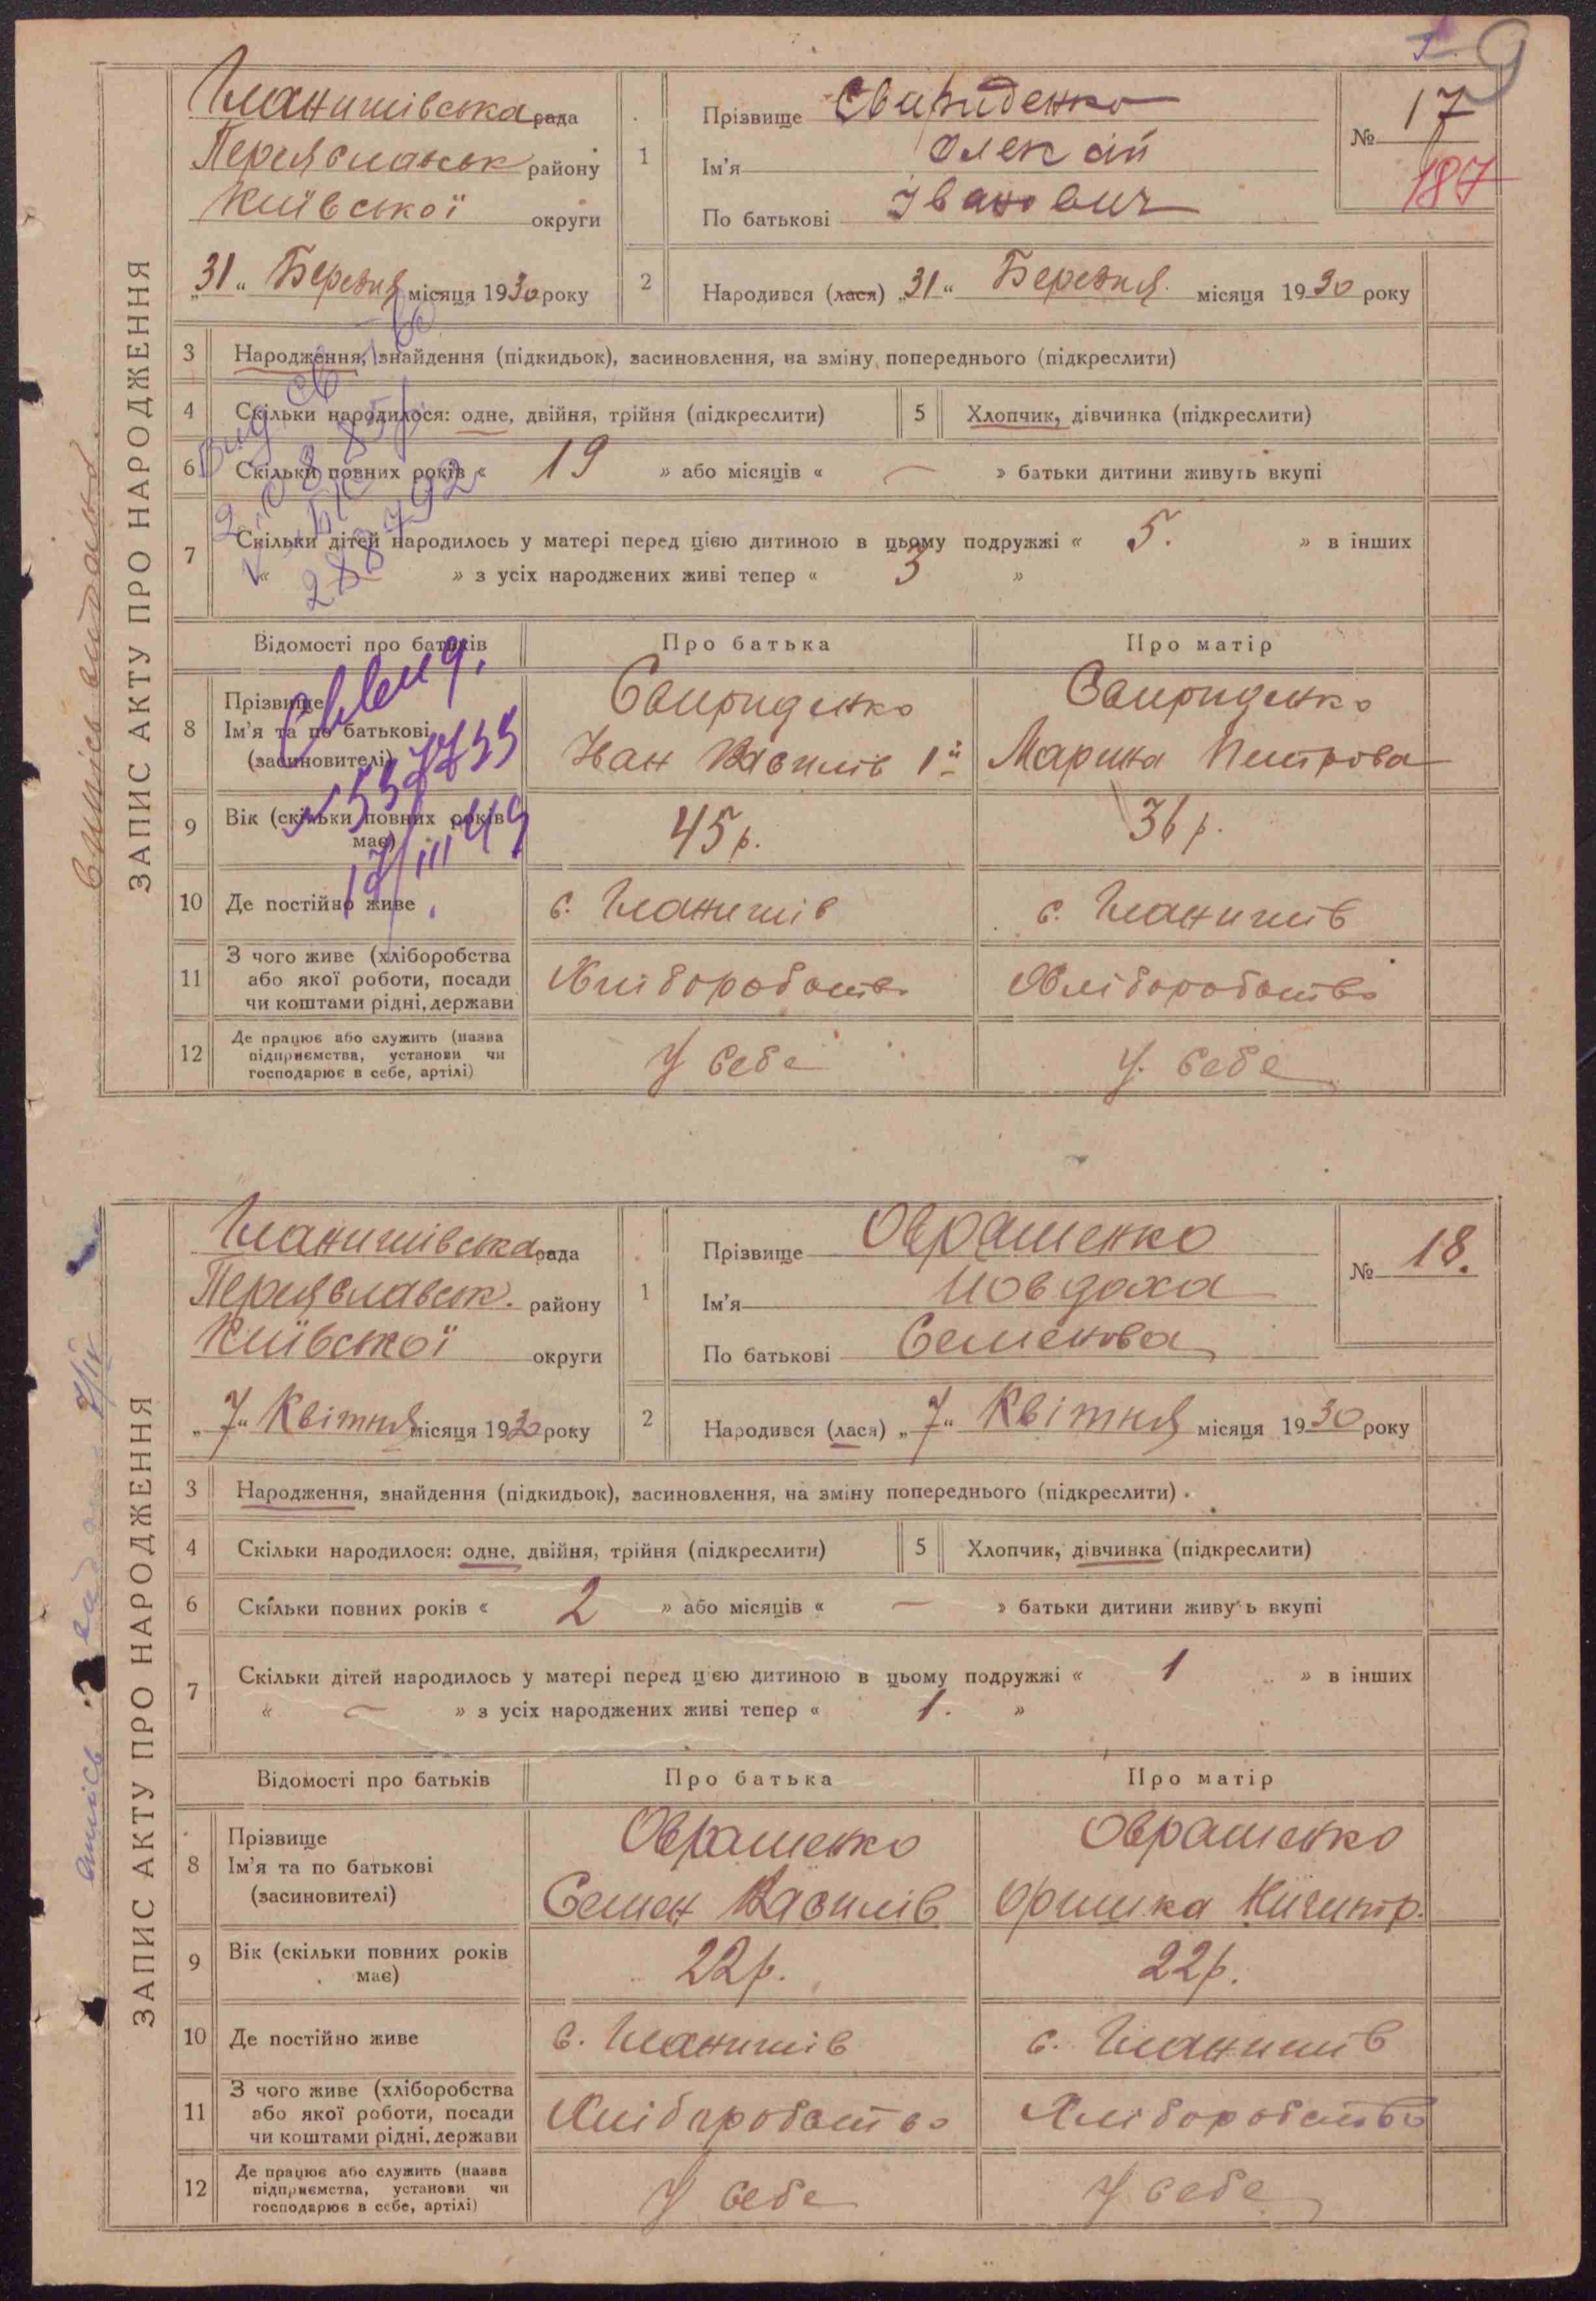 9
ЗАПИС АКТУ ПРО НАРОДЖЕННЯ
Гланишівська рада
Переяславськ району
Київської округи
„31“ Березня місяця 1930 року
1
Прізвище Свириденко
Ім'я Олексій
По батькові Іванович
№ 17
187
2
Народився (лася) „31“ Березня місяця 1930 року
3 Народження, знайдення (підкидьок), засиновлення, на зміну попереднього (підкреслити)
4 Скільки народилося: одне, двійня, трійня (підкреслити)
5 Хлопчик, дівчинка (підкреслити)
6 Скільки повних років « 19 » або місяців « — » батьки дитини живуть вкупі
7 Скільки дітей народилось у матері перед цією дитиною в цьому подружжі « 5. » в інших
« » з усіх народжених живі тепер « 3 »
Відомості про батьків
Про батька
Про матір
8 Прізвище
Ім'я та по батькові
(засиновителі)
Свириденко
Іван Василів 1й
Свириденко
Марина Петрова
9 Вік (скільки повних років
має)
45 р.
36 р.
10 Де постійно живе
с. Гланишів
с. Гланишів
11 З чого живе (хліборобства
або якої роботи, посади
чи коштами рідні, держави
Хліборобство
Хліборобство
12 Де працює або служить (назва
підприємства, установи чи
господарює в себе, артілі)
У себе
У себе
19/III 49
ЗАПИС АКТУ ПРО НАРОДЖЕННЯ
Гланишівська рада
Переяславськ. району
Київської округи
„7“ Квітня місяця 1930 року
1
Прізвище Оврашенко
Ім'я Йовдоха
По батькові Семенова
№ 18.
2
Народився (лася) „7“ Квітня місяця 1930 року
3 Народження, знайдення (підкидьок), засиновлення, на зміну попереднього (підкреслити)
4 Скільки народилося: одне, двійня, трійня (підкреслити)
5 Хлопчик, дівчинка (підкреслити)
6 Скільки повних років « 2 » або місяців « — » батьки дитини живуть вкупі
7 Скільки дітей народилось у матері перед цією дитиною в цьому подружжі « 1 » в інших
« — » з усіх народжених живі тепер « 1. »
Відомості про батьків
Про батька
Про матір
8 Прізвище
Ім'я та по батькові
(засиновителі)
Оврашенко
Семен Василів
Оврашенко
Оришка Кичипір.
9 Вік (скільки повних років
має)
22 р.
22 р.
10 Де постійно живе
с. Гланишів
с. Гланишів
11 З чого живе (хліборобства
або якої роботи, посади
чи коштами рідні, держави
Хліборобство
Хліборобство
12 Де працює або служить (назва
підприємства, установи чи
господарює в себе, артілі)
У себе
У себе